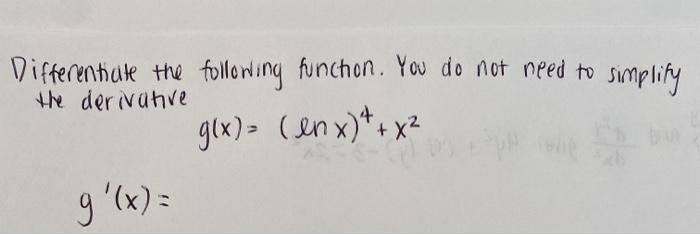 Differentiate the following function. You do not need to simplify
the derivative
g(x) = (ln x)⁴ + x²
g'(x) =